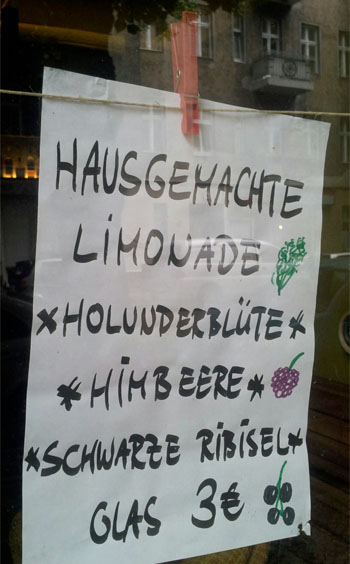 HAUSGEMACHTE
LIMONADE
*HOLUNDERBLÜTE*
*HIMBEERE*
*SCHWARZE RIBISEL*
GLAS 3€